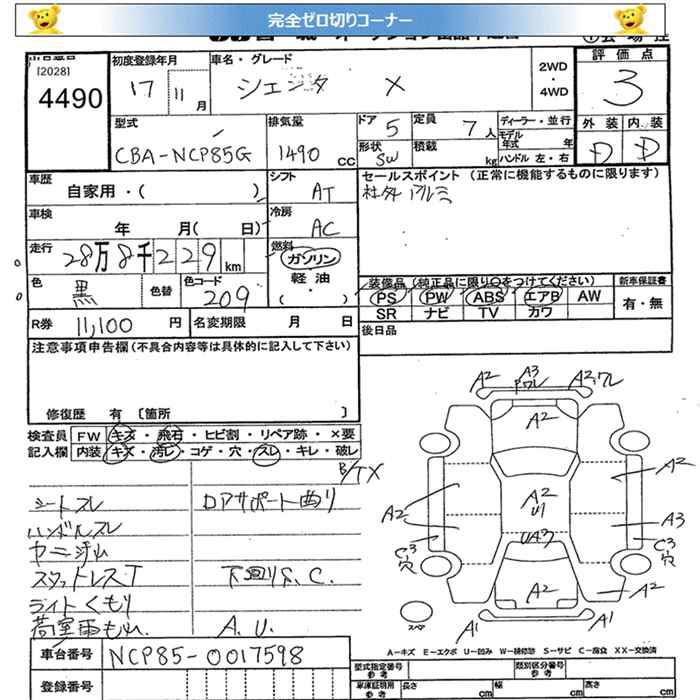 完全ゼロ切りコーナー
[2028]
4490
初度登録年月
17 11 月
車名・グレード
シエンタ X
2WD
・
4WD
評価点
3
外装 内装
D D
型式
CBA-NCP85G
排気量
1490 CC
ドア 5
形状 SW
定員 7 人
積載 kg
ディーラー・並行
モデル年式 年
ハンドル 左・右
車歴
自家用・( )
シフト
AT
セールスポイント (正常に機能するものに限ります)
社外アルミ
車検
年 月( 日)
冷房
AC
走行
28万8千229km
燃料
ガソリン
軽油
( ・ )
色
黒
色替
色コード
209
装備品(純正品に限り○をつけてください)
新車保証書
PS PW ABS エアB AW
SR ナビ TV カワ
有・無
R券 11,100 円
名変期限 月 日
後日品
注意事項申告欄(不具合内容等は具体的に記入して下さい)
修復歴 有 〔箇所 〕
検査員 FW キズ・飛石・ヒビ割・リペア跡・×要
記入欄 内装 キズ・汚レ・コゲ・穴・スレ・キレ・破レ
シートスレ
ドアサポート曲り
ハンドルスレ
ヤニ汚れ
スタットレスT
下回りS.C.
ライトくもり
A.U.
A2 A3 A2
A2
A2 A2
A2
U1
A2 A3
C3 穴 C3 穴
A2 A2
A1 A1
スペア
A-キズ E-エクボ U-凹み W-補修跡 S-サビ C-腐食 XX-交換済
車台番号 NCP85-0017598
登録番号
型式指定番号 参考
類別区分番号 参考
車庫証明用 参考
長さ cm
幅 cm
高さ cm